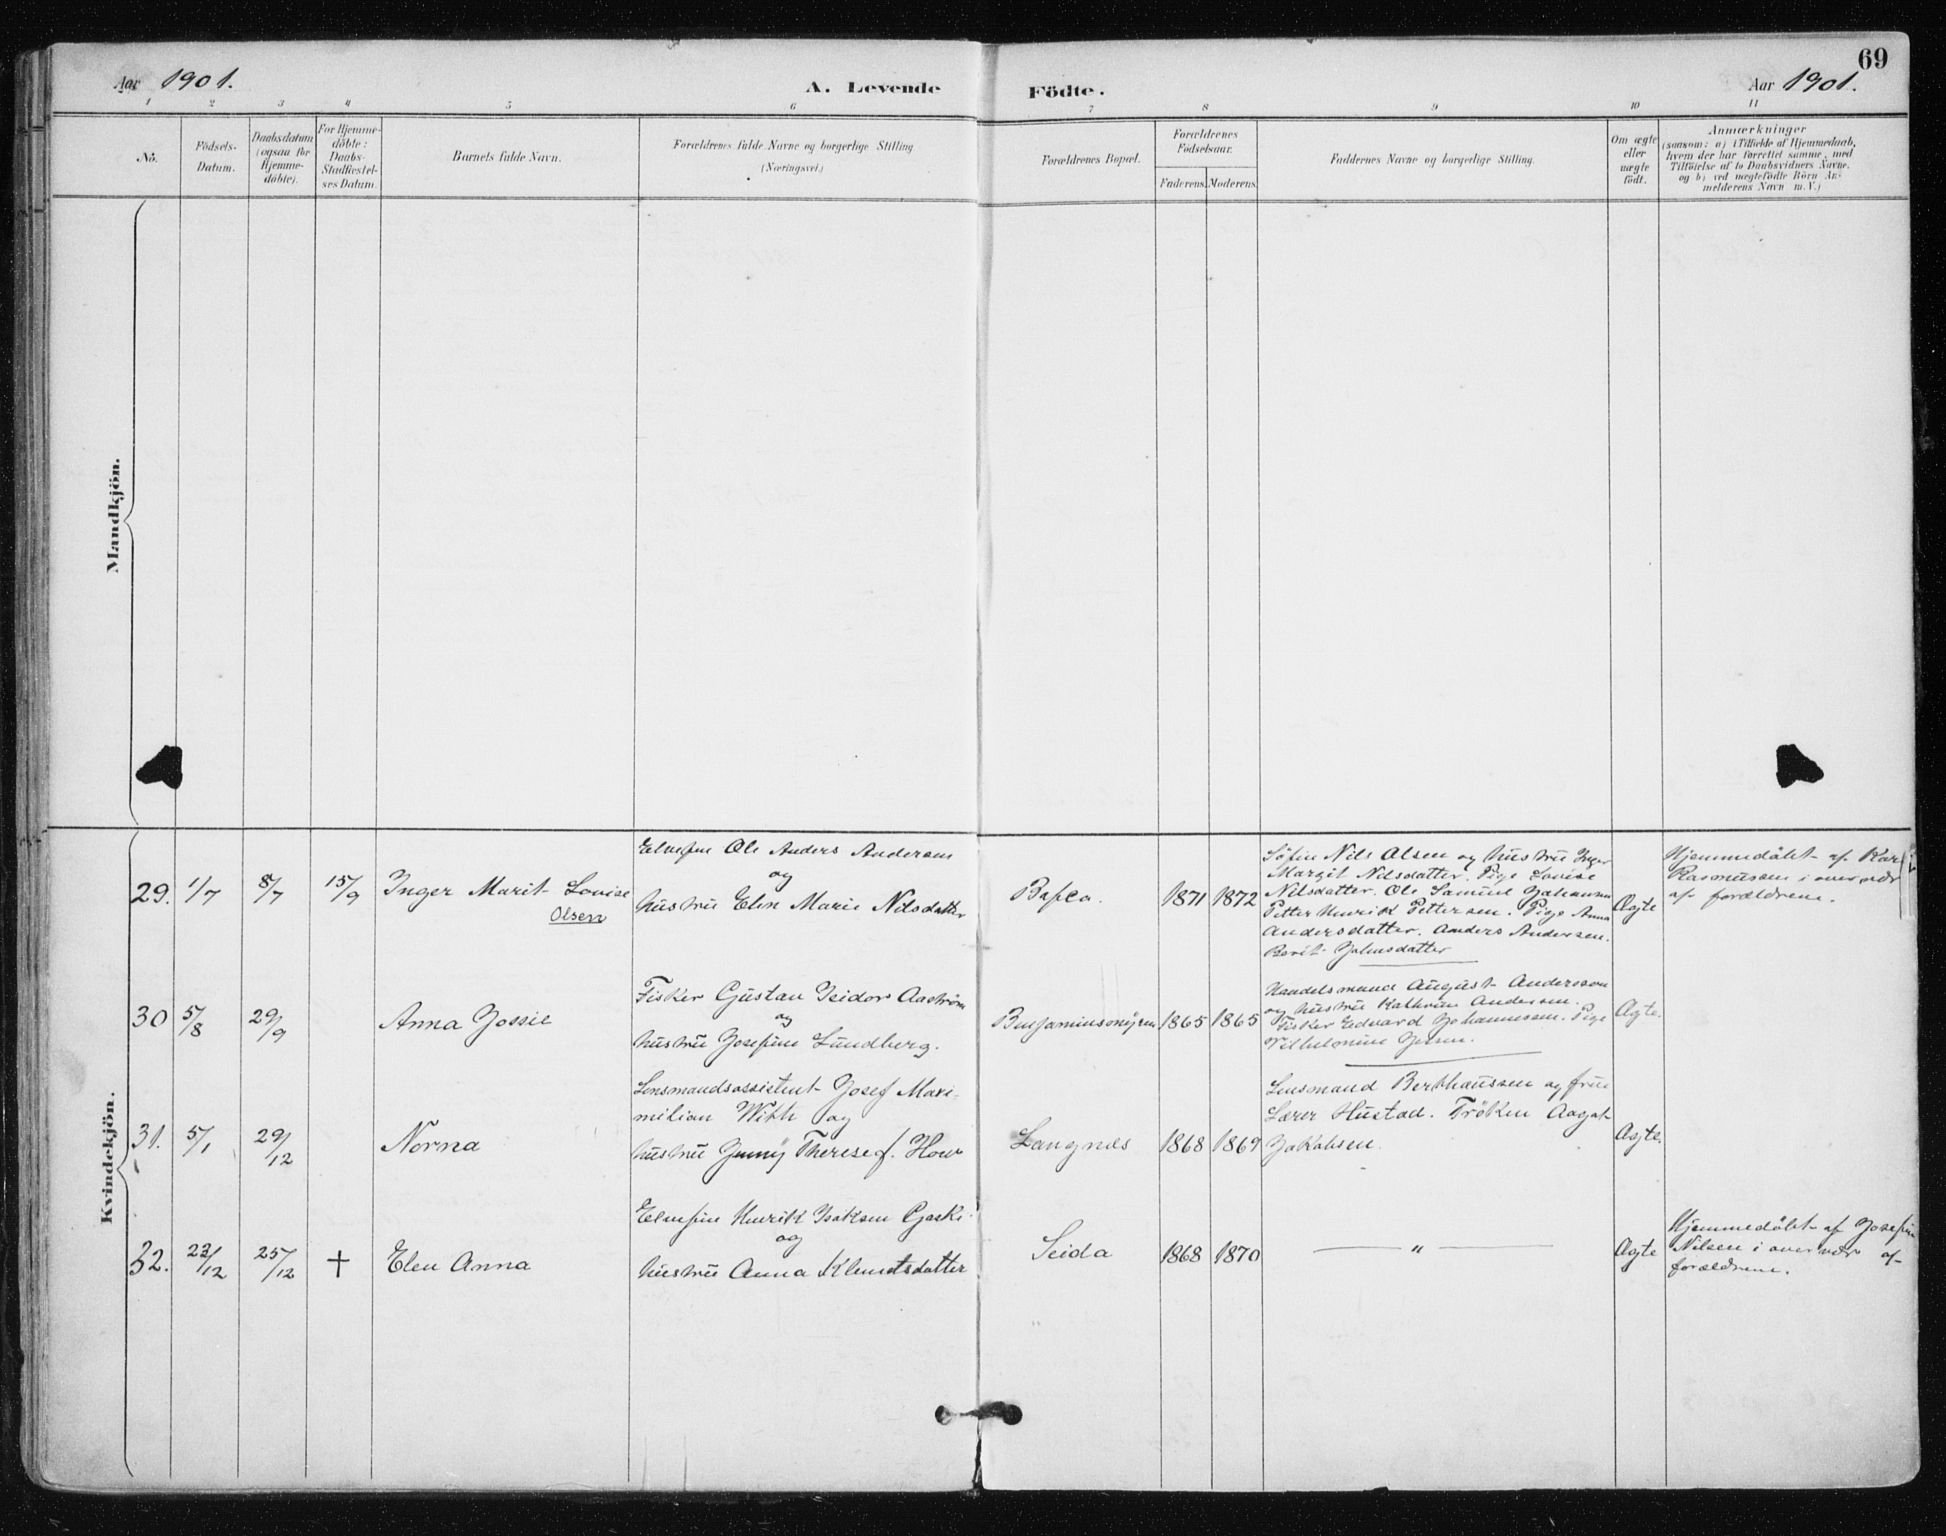 69
Aar 1901. A. Levende Födte. Aar 1901.
1 2 3 4 5 6 7 8 9 10 11
No.
Födsels-
Datum.
Daabsdatum
(ogsaa for
Hjemme-
döbte).
For Hjemme-
döbte:
Daabs-
Stadfæstel-
ses Datum.
Barnets fulde Navn.
Forældrenes fulde Navne og borgerlige Stilling
(Næringsvei.)
Forældrenes Bopæl.
Forældrenes
Födselsaar.
Faderens. Moderens.
Faddernes Navne og borgerlige Stilling.
Om ægte
eller
uægte
födt.
Anmærkninger
(saasom: a) i Tilfælde af Hjemmedaab,
hvem der har forrettet samme, med
Tilföielse af to Daabsvidners Navne.
og b) ved uægtefödte Börn An-
melderens Navn m.V.)
Mandkjön.
Kvindekjön.
29. 1/7 8/7 15/9
Inger Marit Lovise
Olsen
Elvefin Ole Anders Andersen
og
hustru Elen Marie Nilsdatter
1871 1872
Söfin Nils Olsen og hustru Inger
Margit Nilsdatter. Pige Lovise
Nilsdatter. Ole Samuel Johansen
Petter Henrik Pettersen. Pige Anna
Andersdatter. Anders Andersen.
Berit Johnsdatter
Ægte
Hjemmedöbt af Kar
Rasmussen i overvær
af forældrene.
30 5/8 29/9
Anna Jossie
Fisker Gustav Isidor Aaström
og
hustru Josefine Lundberg.
1865 1865
Handelsmand August Andersson
og hustru Kathrine Andersen.
Fisker Edvard Johannessen. Pige
Vilhelmine Jensen.
Ægte.
31. 5/1 29/12
Norma
Lensmandsassistent Josef Maxi-
milian With og
hustru Jenny Therese f. How
Langnes
1868 1869
Lensmand Berthaussen og frue
Lærer Hustad. Fröken Aagot
Jakobsen.
Ægte.
32. 23/12 25/12 †
Elen Anna
Elvefin Henrik Isaksen Gaski
og
hustru Anna Klemetsdatter
Seida
1868 1870
— " —
Ægte
Hjemmedöbt af Josefin
Nilsen i overvær af
forældrene.